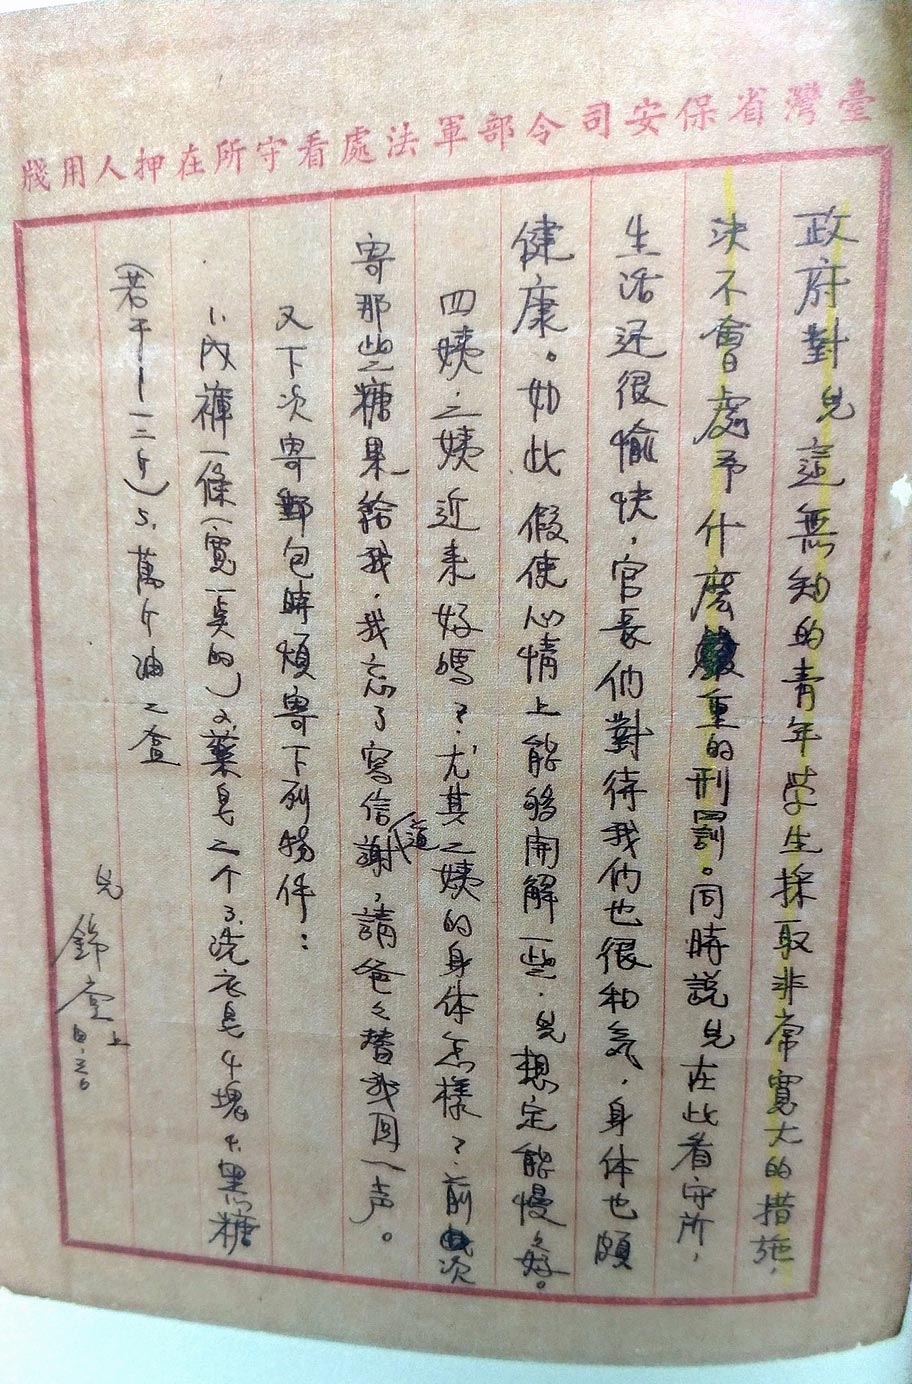 臺灣省保安司令部軍法處看守所在押人用牋
政府對兒這無知的青年學生採取非常寬大的措施,
決不會處予什麼嚴重的刑罰。同時說兒在此看守所,
生活还很愉快,官長他們對待我們也很和気,身体也頗
健康。如此假使心情上能夠開解一些,兒想定能慢々好。
四姨.二姨近来好嗎?尤其二姨的身体怎樣?前次
寄那些糖果給我,我忘了寫信謝,請爸々替我回一声。
又下次寄郵包時煩寄下列物件:
1.內褲一條(寬一点的)2.藥皂二个3.洗衣皂4塊4.黑糖
(若干—一二斤)5.萬斤油二盒
兒
上